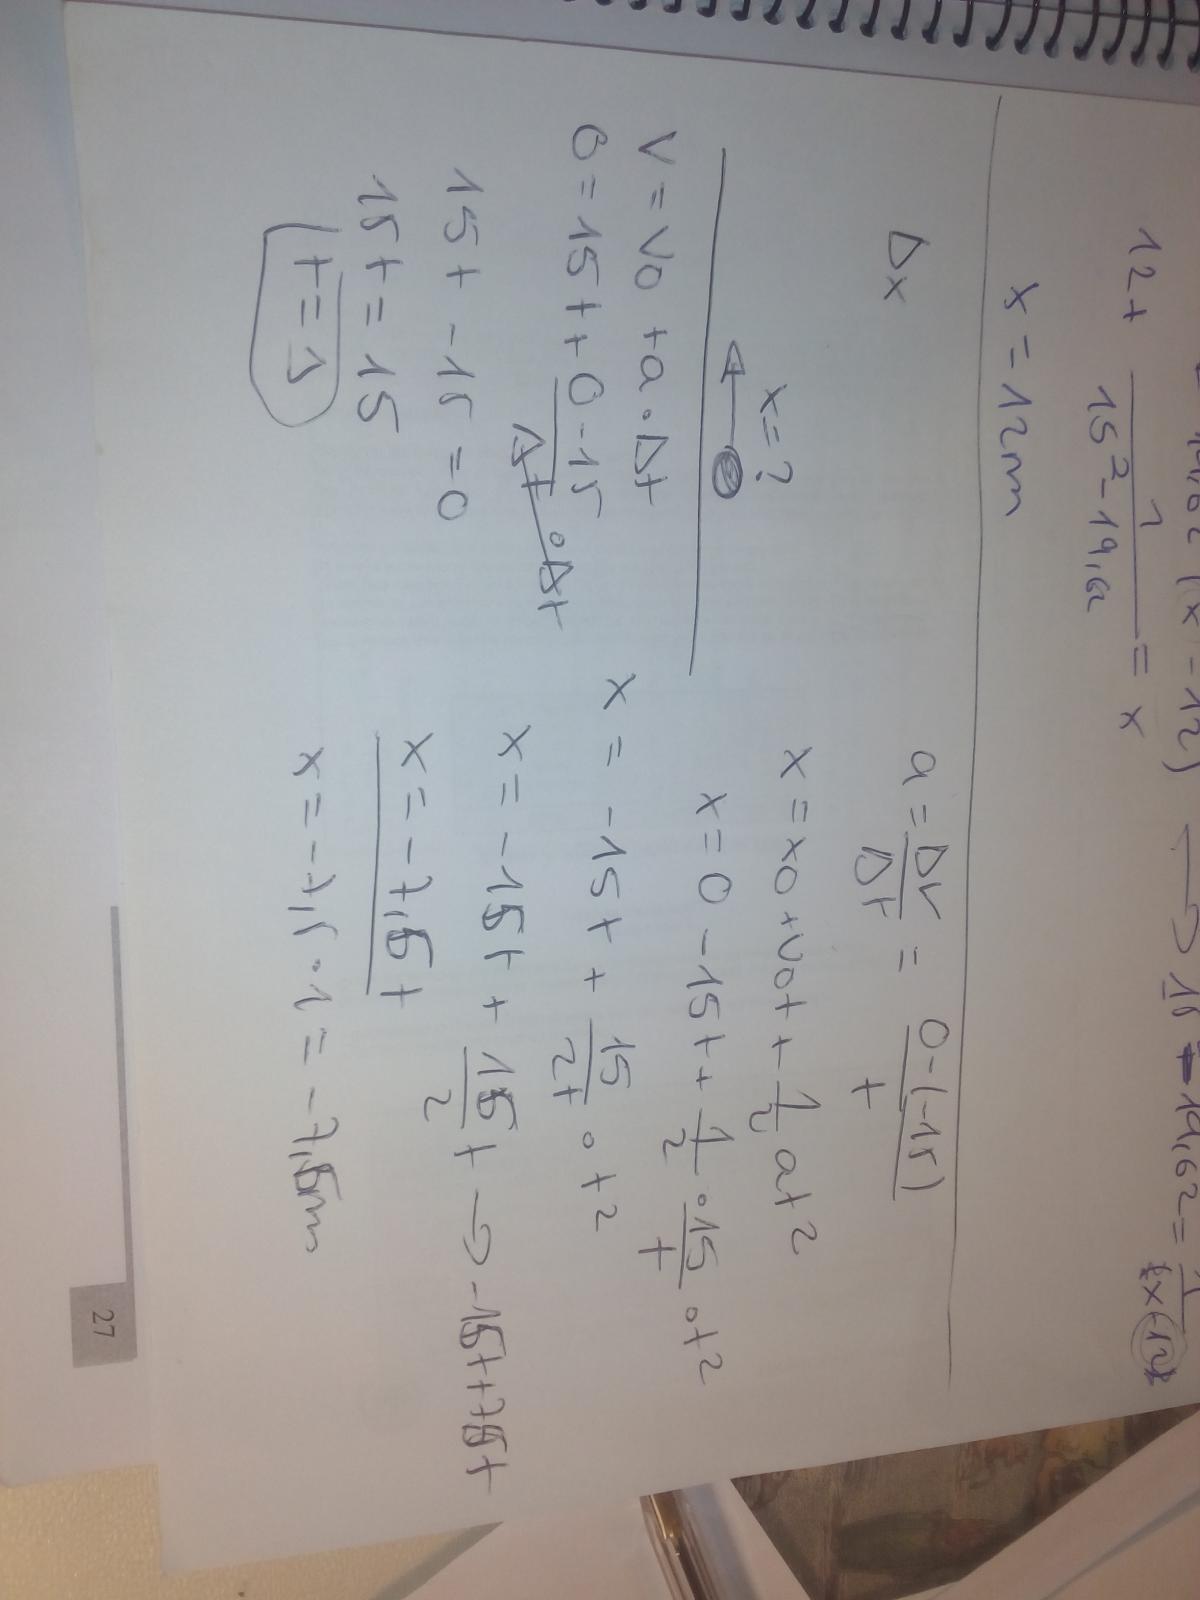 12+ 1/(15²-19,62) = x
x = 12m
Δx
a = Δv/Δt = 0-(-15)/t
x = ?
x = x0 + v0t + 1/2 at²
x = 0 - 15t + 1/2 · 15/t · t²
x = -15t + 15/2t · t²
x = -15t + 15/2 t → -15t+7,5t
x = -7,5t
x = -7,5 · 1 = -7,5m
v = v0 + a · Δt
0 = 15t + 0-15/Δt · Δt
15t - 15 = 0
15t = 15
t = 1
27